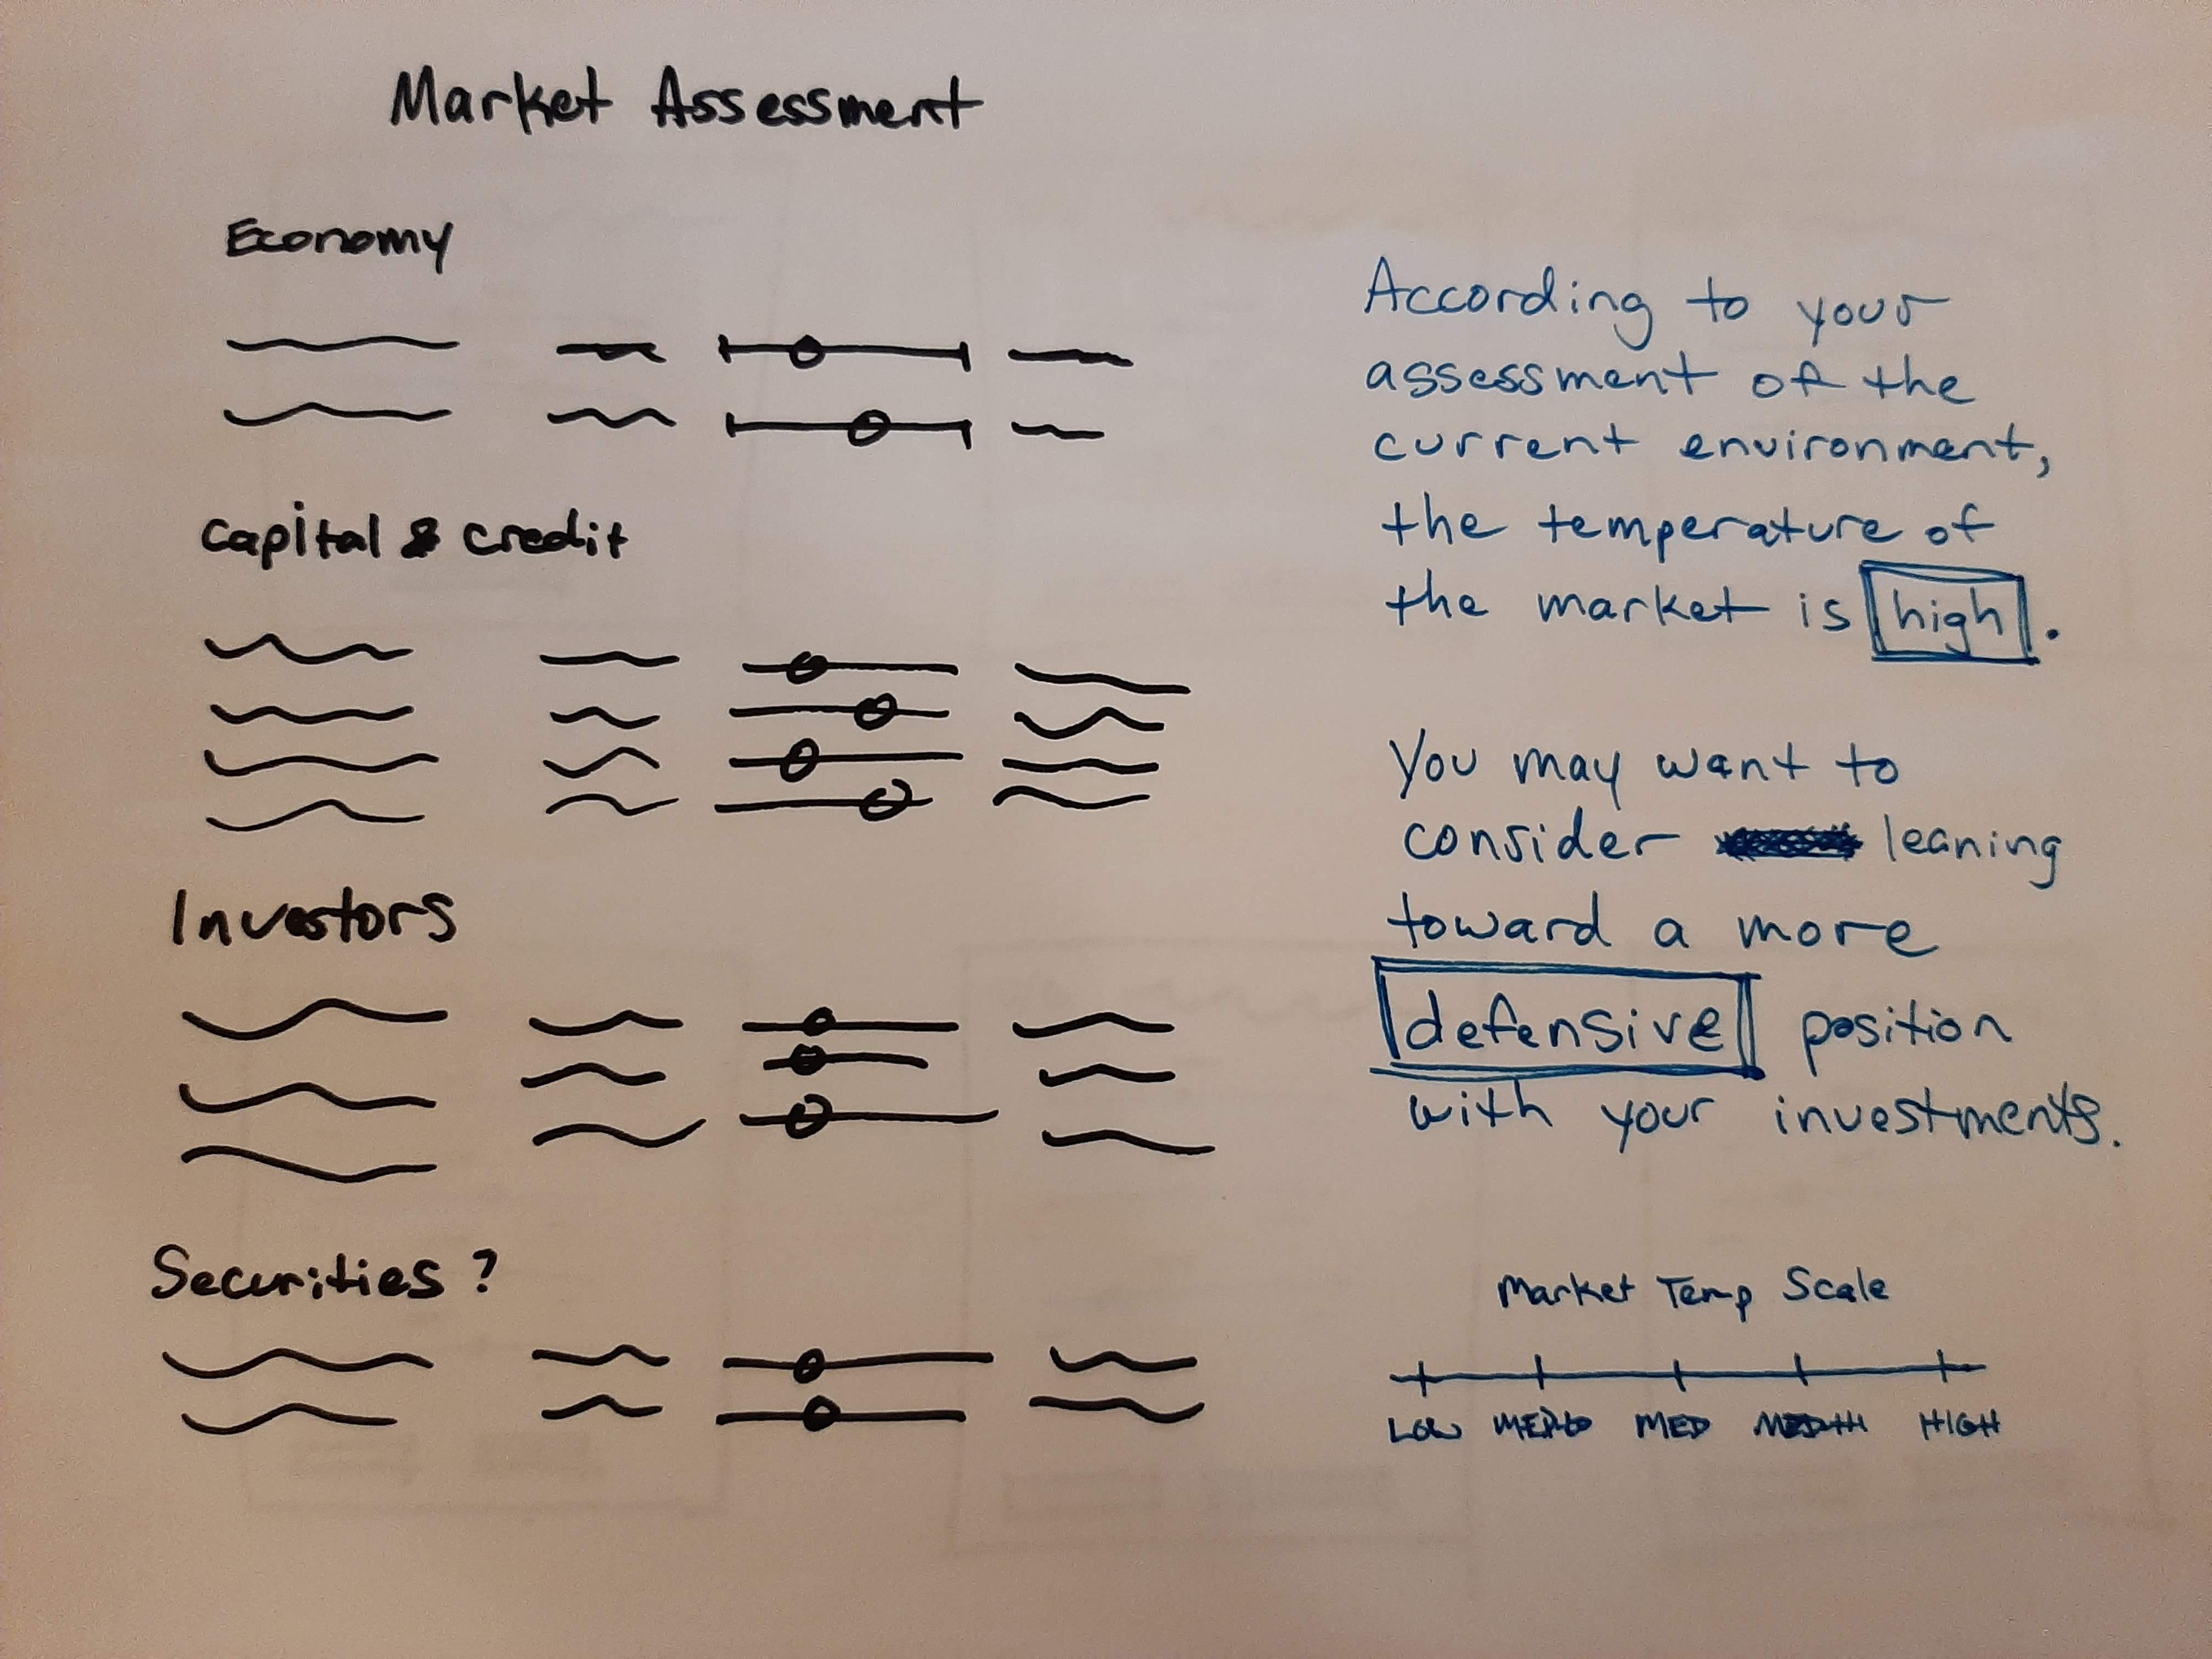 Market Assessment
Economy
Capital & credit
Investors
Securities ?
According to your
assessment of the
current environment,
the temperature of
the market is high.
You may want to
consider leaning
toward a more
defensive position
with your investments.
Market Temp Scale
LOW MED HIGH